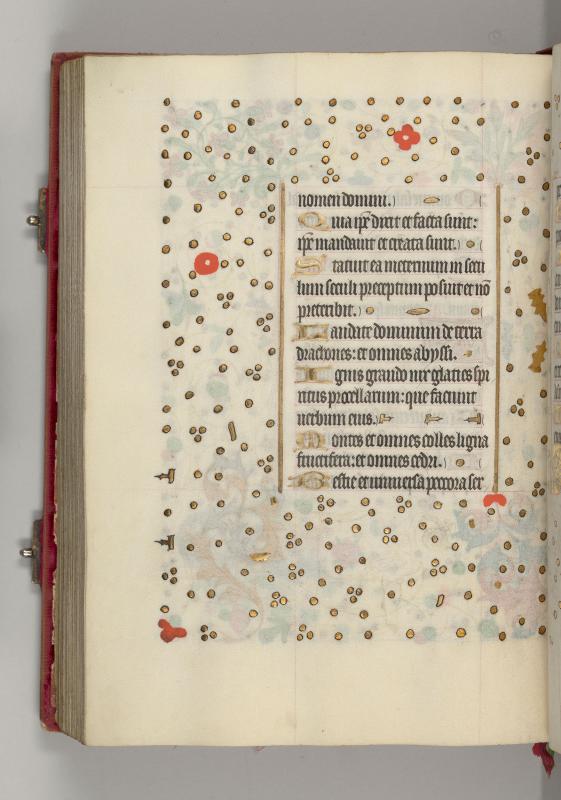 nomen domini.
Quia ip̄e dixit et facta sunt:
ip̄e mandauit et creata sunt.
Statuit ea in eternum in secu
lum seculi preceptum posuit et nō
preteribit.
Laudate dominum de terra
drachones: et omnes abyssi.
Ignis grando nix glacies spi
ritus procellarum: que faciunt
uerbum eius.
Montes et omnes colles ligna
fructifera: et omnes cedri.
Bestie et uniuersa pecora ser